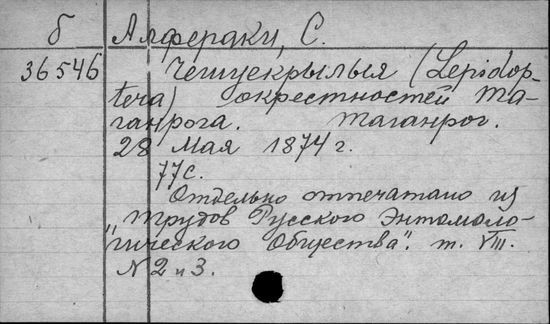 б Алфераки, С.
36546 Чешуекрылыя (Lepidop-
tera) окрестностей Та-
ганрога. Таганрог.
28 Мая 1874 г.
77 с.
Отдельно отпечатано из
„Трудов Русского Энтомоло-
гического Общества". т. VIII.
N 2 и 3.